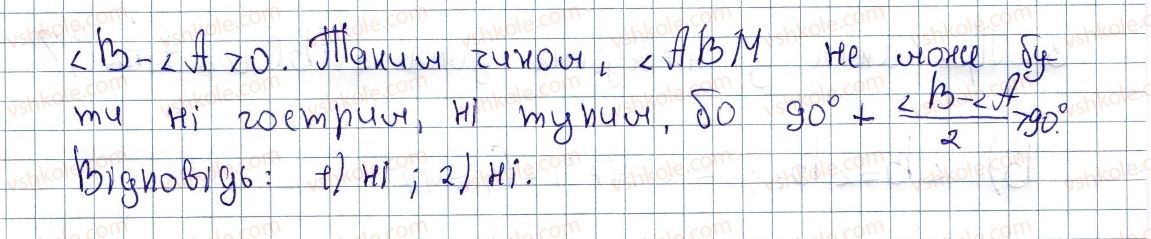 ∠B-∠A>0. Таким чином, ∠ABM не може бу
ти ні гострим, ні тупим, бо 90° + (∠B-∠A)/2 >90°.
Відповідь: 1) ні; 2) ні.